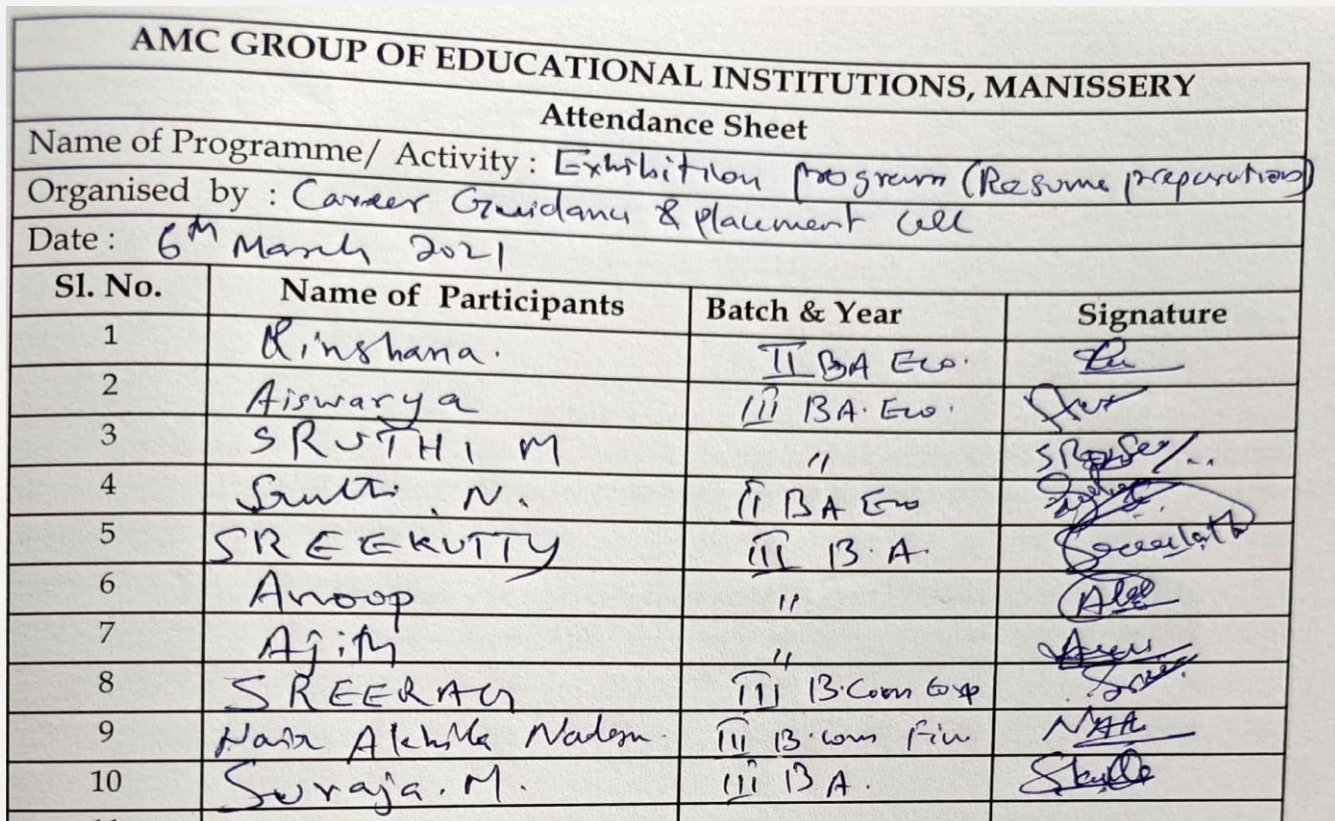 AMC GROUP OF EDUCATIONAL INSTITUTIONS, MANISSERY
Attendance Sheet
Name of Programme/ Activity : Exhibition program (Resume preparation)
Organised by : Career Guidance & placement cell
Date : 6th March 2021
Sl. No. Name of Participants Batch & Year Signature
1 Rinshana. II BA Eco
2 Aiswarya III BA. Eco.
3 SRUTHI M "
4 N. II BA Eco
5 SREEKUTTY III B.A.
6 Anoop "
7 Ajith "
8 SREERAG III B.Com
9 Nair Akhila III B.com Fin NAA
10 Suraja. M. III BA.